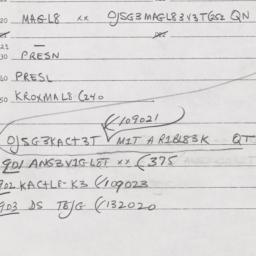 20 MAGL8 xx OJSG3MAGL83V3TG252 QN
21
30 PRESN
60 PRESL
50 KROXMAL8 (240
(109021
OJSG3KACT3T MIT ARIBL83K QT
901 ANS3VIGL8T xx (375
902 KACTL8-K3 (109023
903 DS TBJG (132020